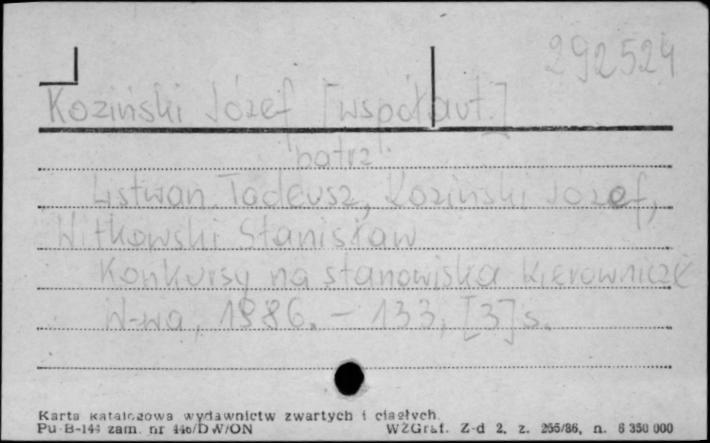 292524
Koziński Józef [współaut.]
patrz:
Listwan Tadeusz, Koziński Józef,
Witkowski Stanisław
Konkursy na stanowiska kierownicze
W-wa, 1986. – 133, [3] s.
Karta katalogowa wydawnictw zwartych i ciągłych.
Pu-B-144 zam. nr 446/DW/ON WZGraf. Z-d 2, z. 255/86, n. 6 350 000